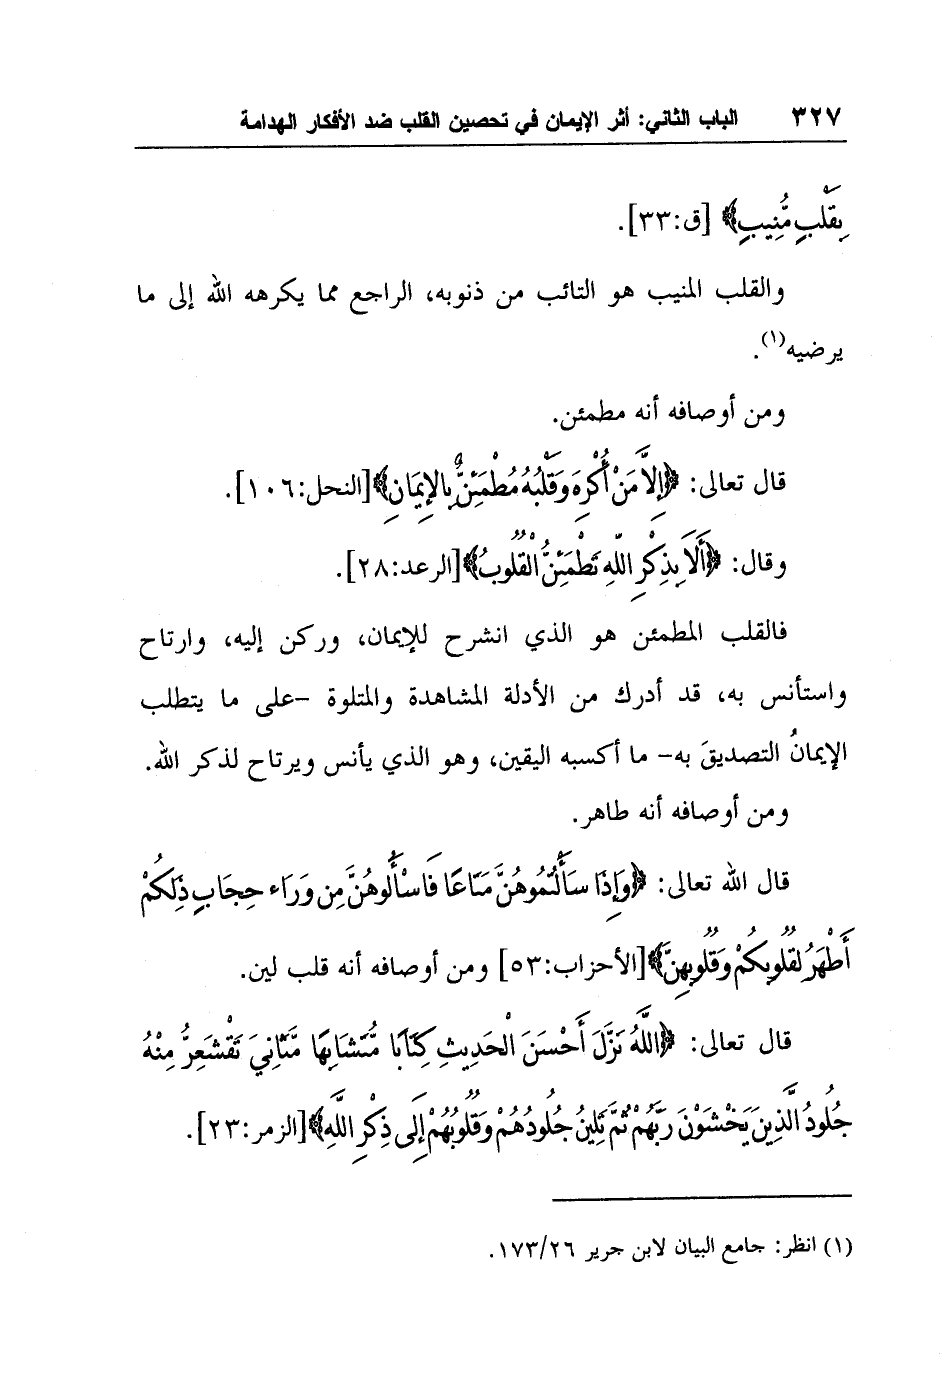 ٣٢٧ الباب الثاني: أثر الإيمان في تحصين القلب ضد الأفكار الهدامة
بِقَلْبٍ مُّنِيبٍ﴾ [ق:٣٣].
والقلب المنيب هو التائب من ذنوبه، الراجع مما يكرهه الله إلى ما
يرضيه(١).
ومن أوصافه أنه مطمئن.
قال تعالى: ﴿إِلاَّ مَنْ أُكْرِهَ وَقَلْبُهُ مُطْمَئِنٌّ بِالإِيمَانِ﴾[النحل:١٠٦].
وقال: ﴿أَلَا بِذِكْرِ اللّهِ تَطْمَئِنُّ الْقُلُوبُ﴾[الرعد:٢٨].
فالقلب المطمئن هو الذي انشرح للإيمان، وركن إليه، وارتاح
واستأنس به، قد أدرك من الأدلة المشاهدة والمتلوة –على ما يتطلب
الإيمانُ التصديقَ به– ما أكسبه اليقين، وهو الذي يأنس ويرتاح لذكر الله.
ومن أوصافه أنه طاهر.
قال الله تعالى: ﴿وَإِذَا سَأَلْتُمُوهُنَّ مَتَاعًا فَاسْأَلُوهُنَّ مِن وَرَاء حِجَابٍ ذَلِكُمْ
أَطْهَرُ لِقُلُوبِكُمْ وَقُلُوبِهِنَّ﴾[الأحزاب:٥٣] ومن أوصافه أنه قلب لين.
قال تعالى: ﴿اللَّهُ نَزَّلَ أَحْسَنَ الْحَدِيثِ كِتَابًا مُّتَشَابِهًا مَّثَانِيَ تَقْشَعِرُّ مِنْهُ
جُلُودُ الَّذِينَ يَخْشَوْنَ رَبَّهُمْ ثُمَّ تَلِينُ جُلُودُهُمْ وَقُلُوبُهُمْ إِلَى ذِكْرِ اللَّهِ﴾[الزمر:٢٣].
(١) انظر: جامع البيان لابن جرير ٢٦/١٧٣.